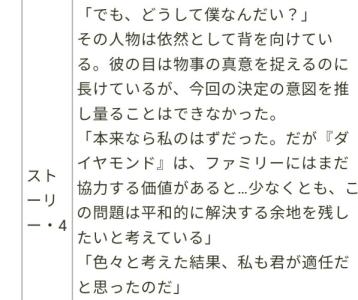 「でも、どうして僕なんだい？」
その人物は依然として背を向けてい
る。彼の目は物事の真意を捉えるのに
長けているが、今回の決定の意図を推
し量ることはできなかった。
「本来なら私のはずだった。だが『ダ
イヤモンド』は、ファミリーにはまだ
協力する価値があると…少なくとも、こ
の問題は平和的に解決する余地を残し
たいと考えている」
「色々と考えた結果、私も君が適任だ
と思ったのだ」
スト
ーリ
ー・4